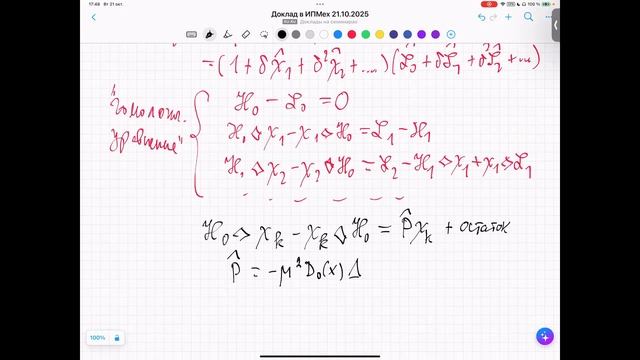 17:48 Вт 21 окт.
Доклад в ИПМех 21.10.2025
Доклады на семинарах
= (1 + δχ̂₁ + δ²χ̂₂ + ....) (L̂₀ + δL̂₁ + δL̂₂ + ...)
"Гомологич. уравнение"
ℋ₀ − ℒ₀ = 0
ℋ₀ ◇ χ₁ − χ₁ ◇ ℋ₀ = ℒ₁ − ℋ₁
ℋ₀ ◇ χ₂ − χ₂ ◇ ℋ₀ = ℒ₂ − ℋ₁ ◇ χ₁ + χ₁ ◇ ℒ₁
ℋ₀ ◇ χₖ − χₖ ◇ ℋ₀ = P̂χₖ + остаток
P̂ = −μ²D₀(x) Δ
100%